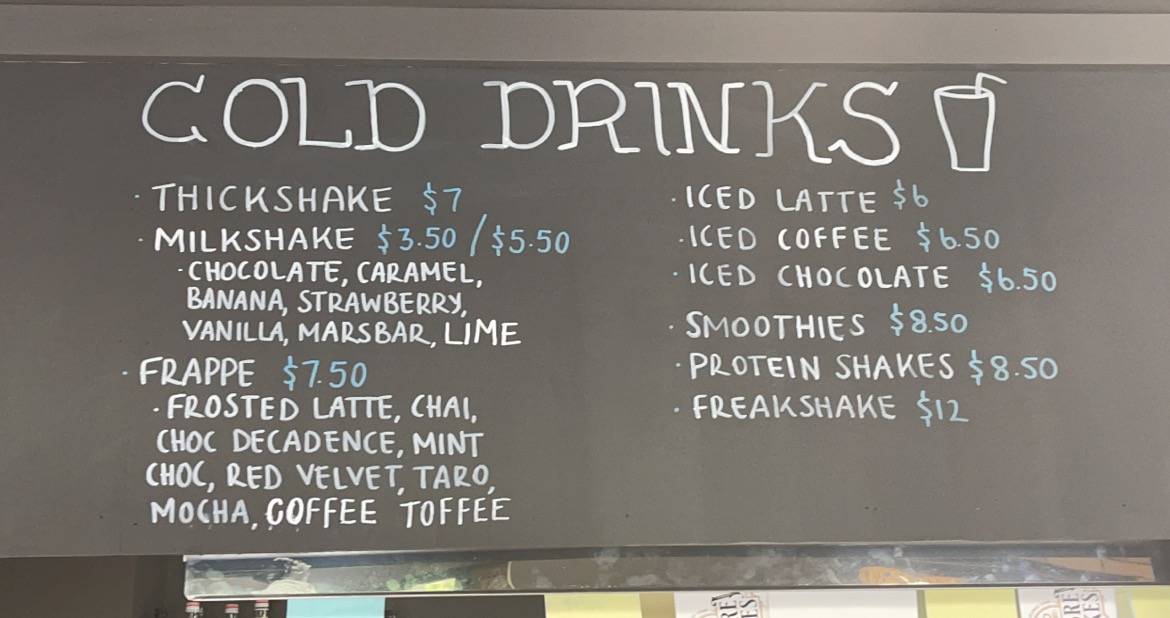 COLD DRINKS
· THICKSHAKE $7
· MILKSHAKE $3.50 / $5.50
· CHOCOLATE, CARAMEL,
BANANA, STRAWBERRY,
VANILLA, MARSBAR, LIME
· FRAPPE $7.50
· FROSTED LATTE, CHAI,
CHOC DECADENCE, MINT
CHOC, RED VELVET, TARO,
MOCHA, COFFEE TOFFEE
· ICED LATTE $6
· ICED COFFEE $6.50
· ICED CHOCOLATE $6.50
· SMOOTHIES $8.50
· PROTEIN SHAKES $8.50
· FREAKSHAKE $12